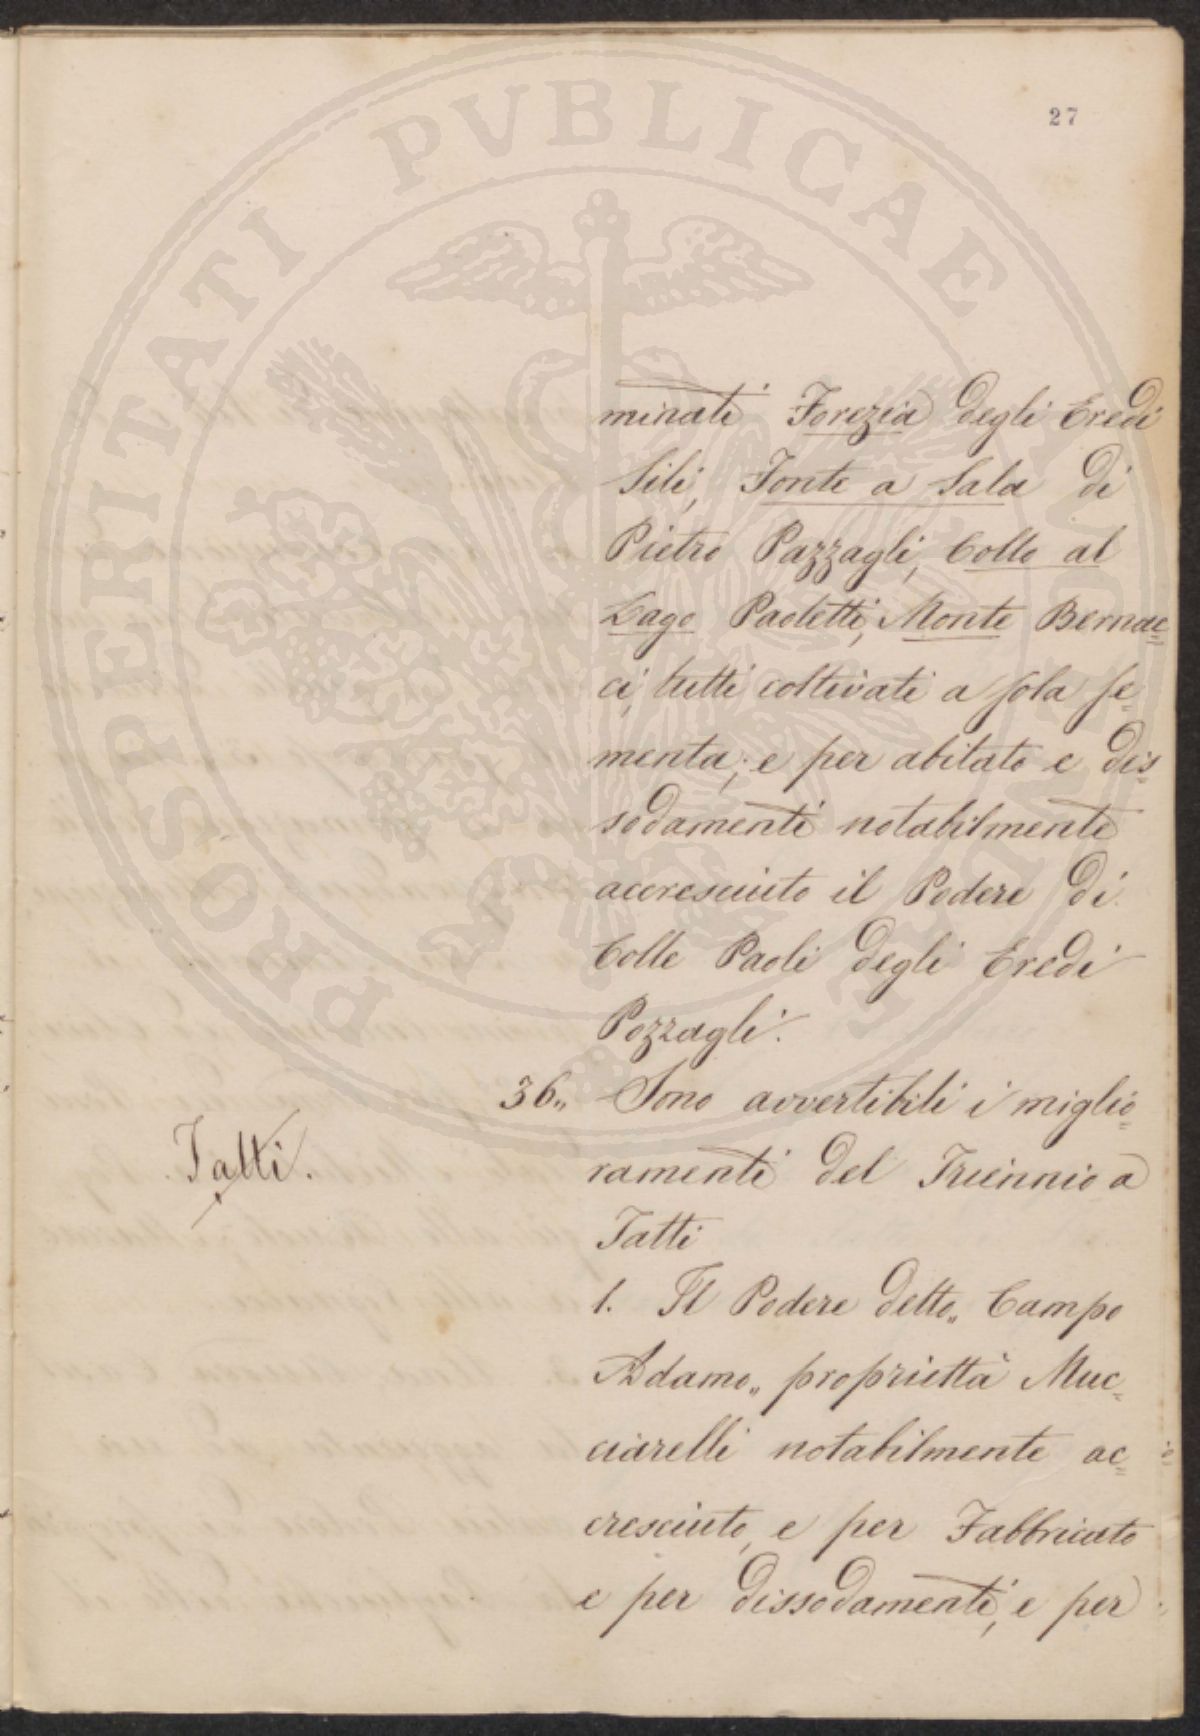 27
minati Forezia degli Eredi
Sili, Fonte a Sala di
Pietro Pazzagli, Collo al
Lago Paoletti, Monte Bernac=
ci, tutti coltivati a sola se=
menta; e per abitato e dis=
sodamenti notabilmente
accresciuto il Podere di
Colle Paoli degli Eredi
Pozzagli.
36„ Sono avvertibili i miglio=
Tatti.
ramenti del Triennio a
Tatti
1. Il Podere detto „ Campo
Adamo „ propriettà Muc=
ciarelli notabilmente ac=
cresciuto, e per Fabbricato
e per dissodamenti, e per
PROSPERITATI PVBLICAE